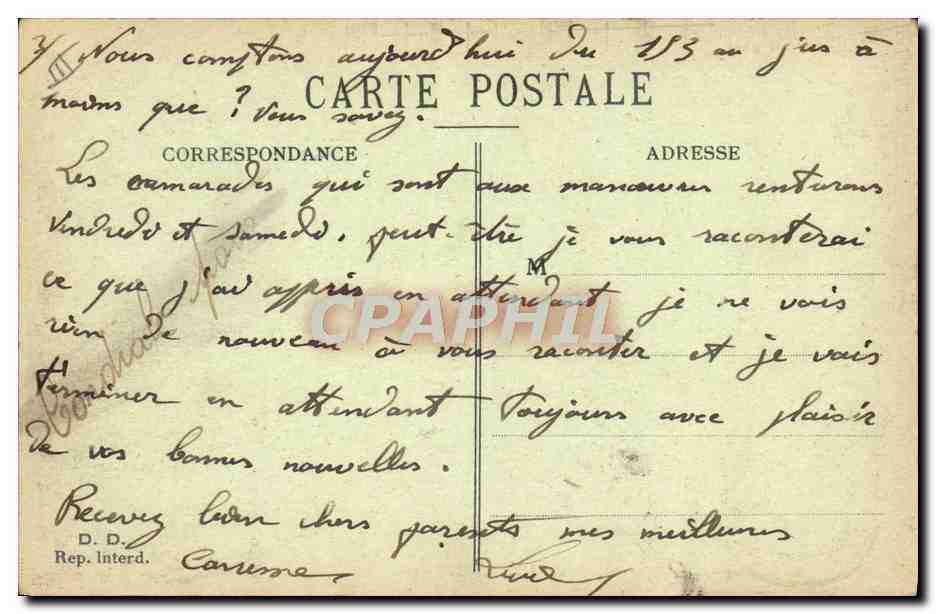 3/ III Nous comptons aujourd'hui du 153 au jus à
CARTE POSTALE
moins que ? Vous savez.
CORRESPONDANCE
ADRESSE
Les camarades qui sont aux manœuvres rentrerons
Vendredi et samedi, peut-être je vous raconterai
M
ce que j'ai appris en attendant je ne vois
CPAPHIL
rien de nouveau à vous raconter et je vais
terminer en attendant toujours avec plaisir
de vos bonnes nouvelles.
Recevez bien chers parents mes meilleures
D. D.
Rep. Interd.